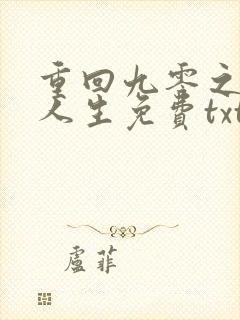 重回九零之
人生免费txt
卢菲